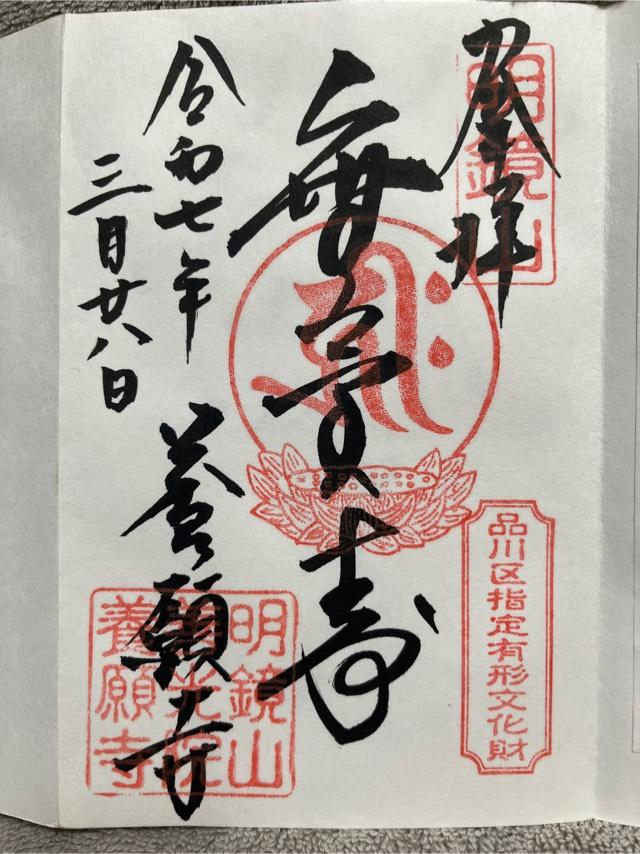 奉拝
明鏡山
無量寿
品川区指定有形文化財
令和七年
三月廿八日
養願寺
明鏡山
善光院
養願寺